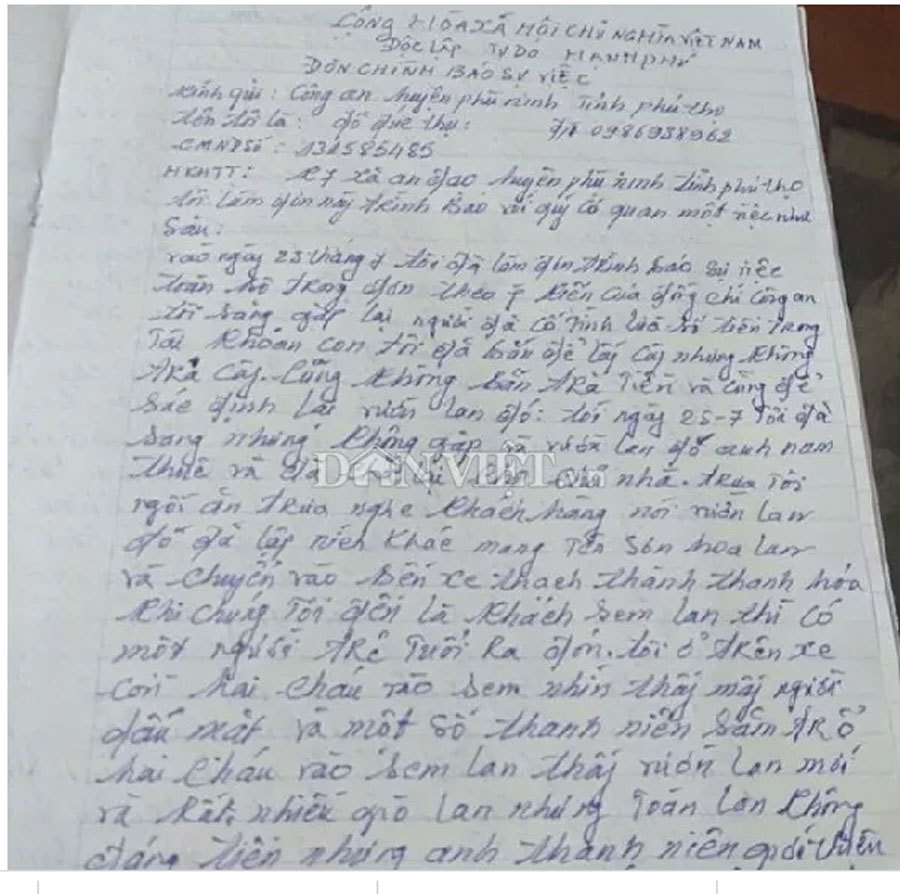 CỘNG HÒA XÃ HỘI CHỦ NGHĨA VIỆT NAM
Độc Lập Tự Do Hạnh phú
ĐƠN CHÌNH BÁO SỰ VIỆC
kính gửi: Công an huyện phù ninh Tỉnh phú thọ
tên tôi là: đỗ đức thụ: 0986938962
CMNDSố: 131585485
HKHTT: K7 xã an đạo huyện phù ninh tỉnh phú thọ
tôi làm đơn này trình báo với quý cơ quan một việc như
Sau:
vào ngày 23 tháng 7 tôi đã làm đơn trình báo sự việc
trong đơn theo ý kiến của đồng chí Công an
tôi sang gặp lại người đã cố tình lừa số tiền trong
Tài khoản con tôi đã bán để lấy cây nhưng không
trả cây. Cũng không trả Tiền và cũng để
sác định lại vườn lan đó: tới ngày 25-7 Tôi đã
Sang nhưng không gặp và vườn lan đó anh nam
thuê và đã chủ nhà. trưa Tôi
DÂNVIỆT
ngồi ăn trưa nghe khách hàng nói vườn lan
đó đã lập ních khác mang Tên Sơn hoa lan
và chuyển vào bến xe thạch thành thanh hóa
khi chúng Tôi đến là khách sem lan thì có
một người trẻ Tuổi Ra đón. tôi ở trên xe
Còn hai cháu vào sem nhìn thấy mấy người
dấu mặt và một số thanh niên săm trổ
hai cháu vào sem lan thấy vườn lan mới
và rất nhiều giò lan nhưng Toàn lan không
đáng tiền nhưng anh thanh niên